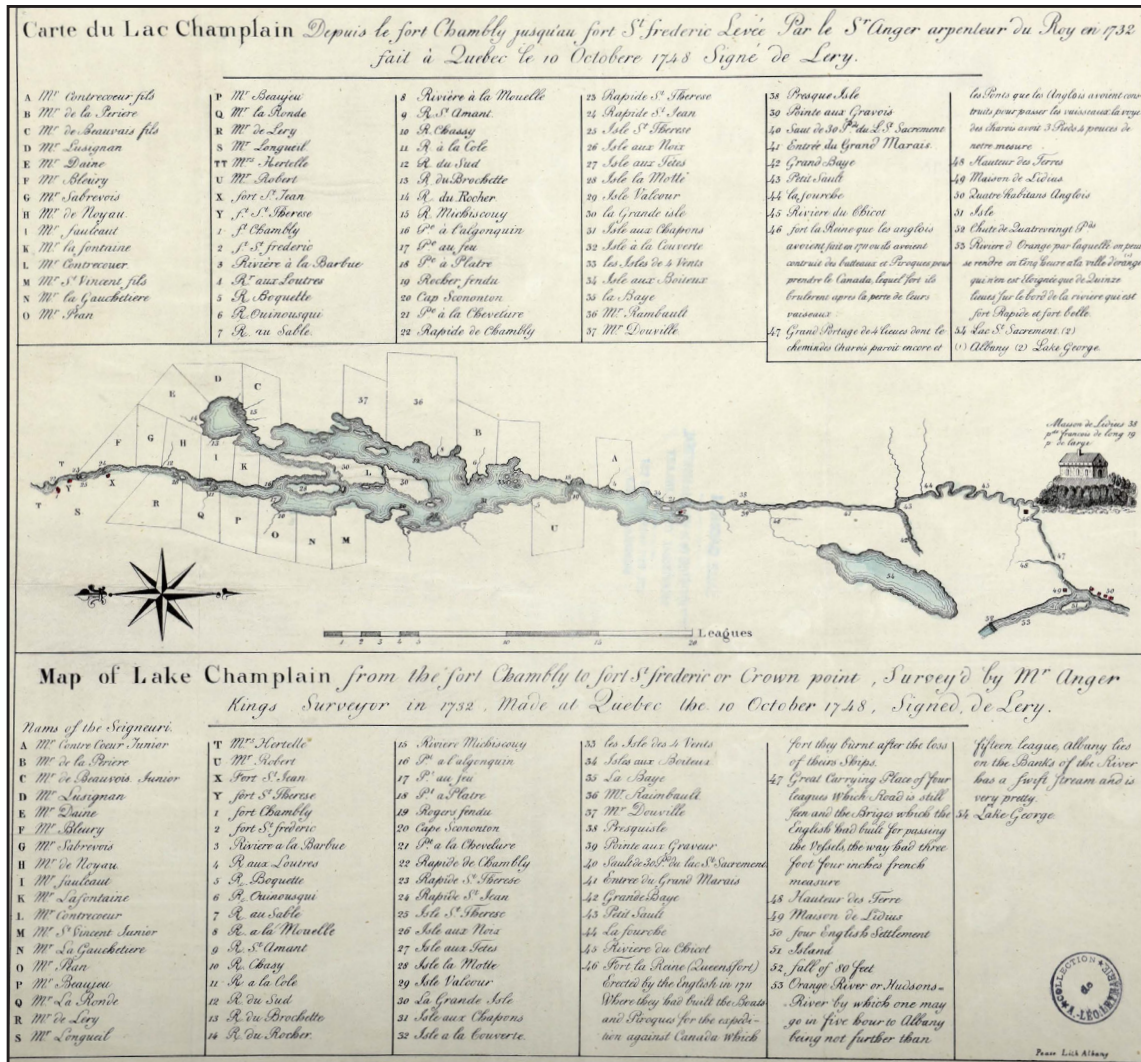 Carte du Lac Champlain Depuis le fort Chambly jusqu'au fort St frederic Levée Par le Sr Anger arpenteur du Roy en 1732
fait à Quebec le 10 Octobere 1748 Signé de Lery.
A Mr Contrecoeur fils
B Mr de la Periere
C Mr de Beauvais fils
D Mr Lusignan
E Mr Daine
F Mr Bleury
G Mr Sabrevois
H Mr de Noyau
I Mr faulcaut
K Mr la fontaine
L Mr Contrecouer
M Mr St Vincent fils
N Mr la Gauchetiere
O Mr Pean
P Mr Beaujeu
Q Mr la Ronde
R Mr de Lery
S Mr Longueil
TT Mrs Hertelle
U Mr Robert
X fort St Jean
Y ft St Therese
1 ft Chambly
2 ft St frederic
3 Rivière à la Barbue
4 Re aux Loutres
5 R. Boquette
6 R. Ouinousqui
7 R. au Sable
8 Rivière à la Mouelle
9 R. St Amant
10 R. Chassy
11 R. à la Cole
12 R. du Sud
13 R. du Brochette
14 R. du Rocher
15 R. Michiscouy
16 Pte à l'algonquin
17 Pte au feu
18 Pte à Platre
19 Rocher fendu
20 Cap Scononton
21 Pte à la Cheveture
22 Rapide de Chambly
23 Rapide St Therese
24 Rapide St Jean
25 Isle St Therese
26 Isle aux Noix
27 Isle aux Fêtes
28 Isle la Motte
29 Isle Valcour
30 la Grande isle
31 Isle aux Chapons
32 Isle à la Couverte
33 les Isles de 4 Vents
34 Isle aux Boiteux
35 la Baye
36 Mr Rambault
37 Mr Douville
38 Presque Isle
39 Pointe aux Gravois
40 Saut de 30 Pds du L. St Sacrement
41 Entrée du Grand Marais
42 Grand Baye
43 Petit Sault
44 la fourche
45 Riviere du Chicot
46 fort la Reine que les anglois
avoient fait en 1711 ou ils avoient
construit des batteaux et Piroques pour
prendre le Canada, lequel fort ils
brulèrent apres la perte de leurs
vaiseaux
47 Grand Portage de 4 lieues dont le
chemin des Charois paroit encore et
les Ponts que les Anglois avoient cons-
truits pour passer les vaisseaux la voye
des charois avoit 3 Pieds 4 pouces de
notre mesure
48 Hauteur des Terres
49 Maison de Lidius
50 Quatre habitans Anglois
51 Isle
52 Chute de Quatrevingt Pds
53 Riviere d'Orange par laquelle on peut
se rendre en Cinq heure a la ville d'orange
qui n'en est Eloignée que de Quinze
lieues sur le bord de la riviere qui est
fort Rapide et fort belle
54 Lac St Sacrement (2)
(1) Albany (2) Lake George
Maison de Lidius 38
pds francois de long 19
p. de large
Leagues
Map of Lake Champlain from the fort Chambly to fort St frederic or Crown point, Survey'd by Mr Anger
Kings Surveyor in 1732, Made at Quebec the 10 October 1748, Signed, de Lery.
Nams of the Seigneuri.
A Mr Contre Coeur Junior
B Mr de la Periere
C Mr de Beauvois Junior
D Mr Lusignan
E Mr Daine
F Mr Bleury
G Mr Sabrevois
H Mr de Noyau
I Mr faulcaut
K Mr Lafontaine
L Mr Contrecoeur
M Mr St Vincent Junior
N Mr La Gauchetiere
O Mr Pean
P Mr Beaujeu
Q Mr La Ronde
R Mr de Léry
S Mr Longueil
T Mrs Hertelle
U Mr Robert
X Fort St Jean
Y fort St Therese
1 fort Chambly
2 fort St frederic
3 Riviere a la Barbue
4 R aux Loutres
5 R. Boquette
6 R. Ouinousqui
7 R. au Sable
8 R. a la Mouelle
9 R. St Amant
10 R. Chasy
11 R. a la Cole
12 R. du Sud
13 R. du Brochette
14 R. du Rocher
15 Riviere Michiscouy
16 Pt a l'algonquin
17 Pt au feu
18 Pt a Platre
19 Rogers fendu
20 Cape Scononton
21 Pt a la Chevelure
22 Rapide de Chambly
23 Rapide St Therese
24 Rapide St Jean
25 Isle St Therese
26 Isle aux Noix
27 Isle aux Fetes
28 Isle la Motte
29 Isle Valcour
30 La Grande Isle
31 Isle aux Chapons
32 Isle a la Couverte
33 les Isle des 4 Vents
34 Isles aux Boiteux
35 La Baye
36 Mr Raimbault
37 Mr Douville
38 Presquisle
39 Pointe aux Graveur
40 Sault de 30 Pds du lac St Sacrement
41 Entree du Grand Marais
42 Grande Baye
43 Petit Sault
44 La fourche
45 Riviere du Chicot
46 Fort la Reine (Queensfort)
Erected by the English in 1711
Where they had built the Boats
and Piroques for the expedi-
tion against Canada which
fort they burnt after the loss
of theirs Ships.
47 Great Carrying Place of four
leagues Which Road is still
seen and the Briges which the
English had built for passing
the Vessels, the way had three
foot four inches french
measure
48 Hauteur des Terre
49 Maison de Lidius
50 four English Settlement
51 Island
52 fall of 80 feet
53 Orange River or Hudsons-
River by which one may
go in five hour to Albany
being not further than
fifteen league, Albany lies
on the Banks of the River
has a swift stream and is
very pretty.
54 Lake George
COLLECTION de
Pease Lith Albany